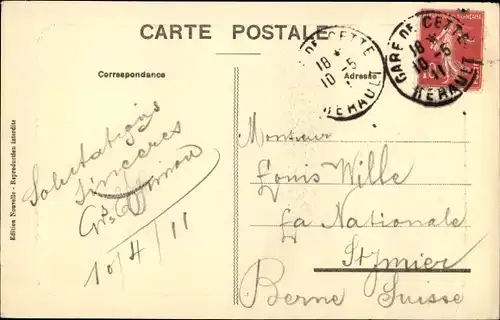 CARTE POSTALE
Correspondance
Adresse
GARE DE CETTE
18 *
10 - 5
11
HERAULT
DE CETTE
18 *
10 - 5
HERAULT
Edition Nouvelle - Reproduction interdite
Salutations
sincères
10/4/11
Monsieur
Louis Wille
La Nationale
St Imier
Berne Suisse